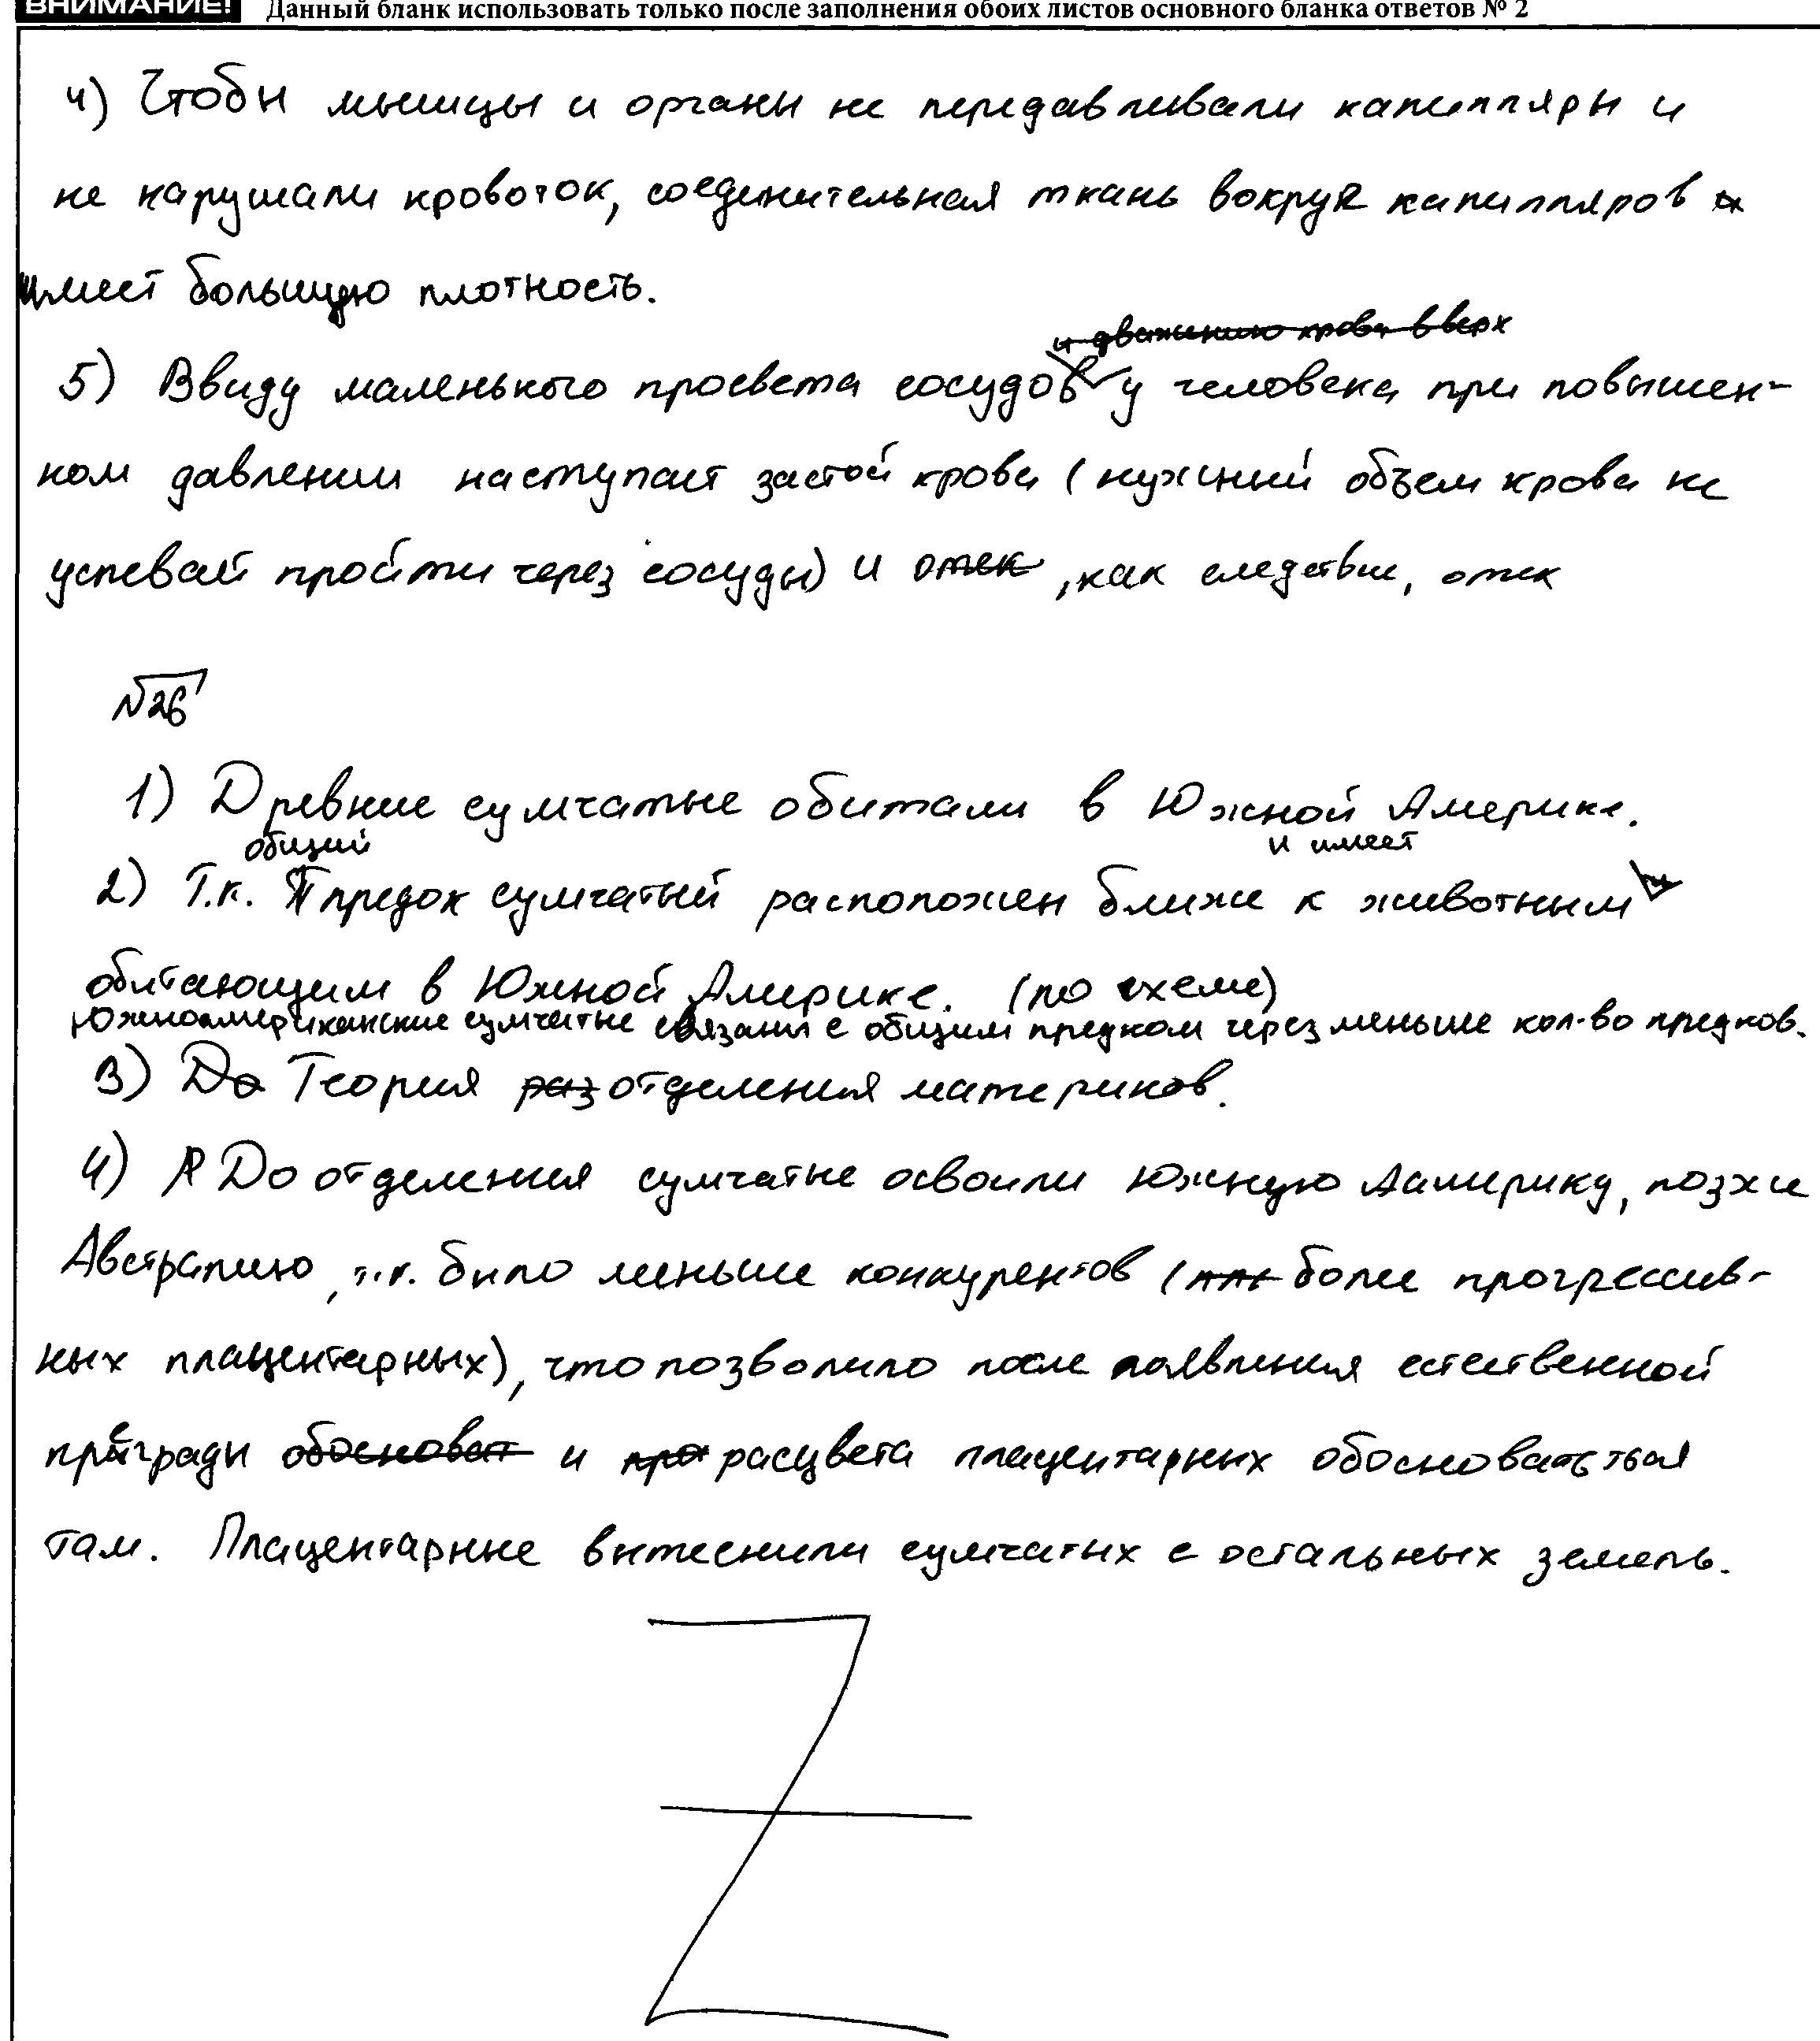 ВНИМАНИЕ! Данный бланк использовать только после заполнения обоих листов основного бланка ответов № 2
4) Чтобы мышцы и органы не передавливали капилляры и
не нарушали кровоток, соединительная ткань вокруг капилляров
имеет большую плотность.
и движению крови вверх
5) Ввиду маленького просвета сосудов у человека при повышен-
ном давлении наступает застой крови (нужный объем крови не
успевай пройти через сосуды) и отек, как следствие, отек
№26
1) Древние сумчатые обитали в Южной Америке.
общий и имеет
2) Т.к. предок сумчатый расположен ближе к животным
обитающим в Южной Америке. (по схеме)
Южноамериканские сумчатые связани с общим предком через меньше кол-во предков.
3) До Теория раз отделения материков.
4) До отделения сумчатые освоили Южную Америку, позже
Австралию, т.к. было меньше конкурентов (пла более прогрессив-
ных плацентарных), что позволило после появления естественной
преграды обосноват и про расцвета плацентарных обосноваться
там. Плацентарные вытеснили сумчатых с остальных земель.
Z